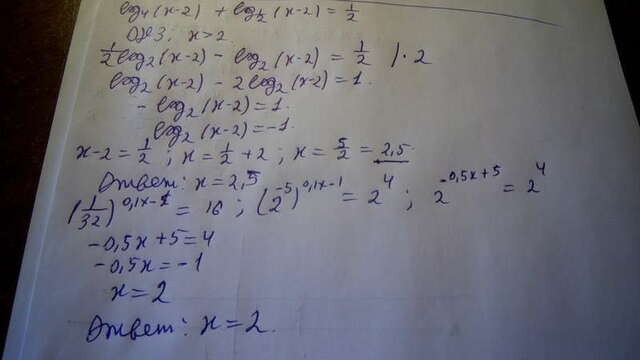 log₄(x-2) + log_{1/2}(x-2) = 1/2
ОДЗ; x>2.
1/2 log₂(x-2) - log₂(x-2) = 1/2 | · 2
log₂(x-2) - 2log₂(x-2) = 1.
- log₂(x-2) = 1.
log₂(x-2) = -1.
x-2 = 1/2 ; x = 1/2 + 2 ; x = 5/2 = 2,5.
Ответ: x = 2,5
(1/32)^{0,1x-1} = 16 ; (2^{-5})^{0,1x-1} = 2^4 ; 2^{-0,5x+5} = 2^4
-0,5x+5 = 4
-0,5x = -1
x = 2
Ответ: x = 2.